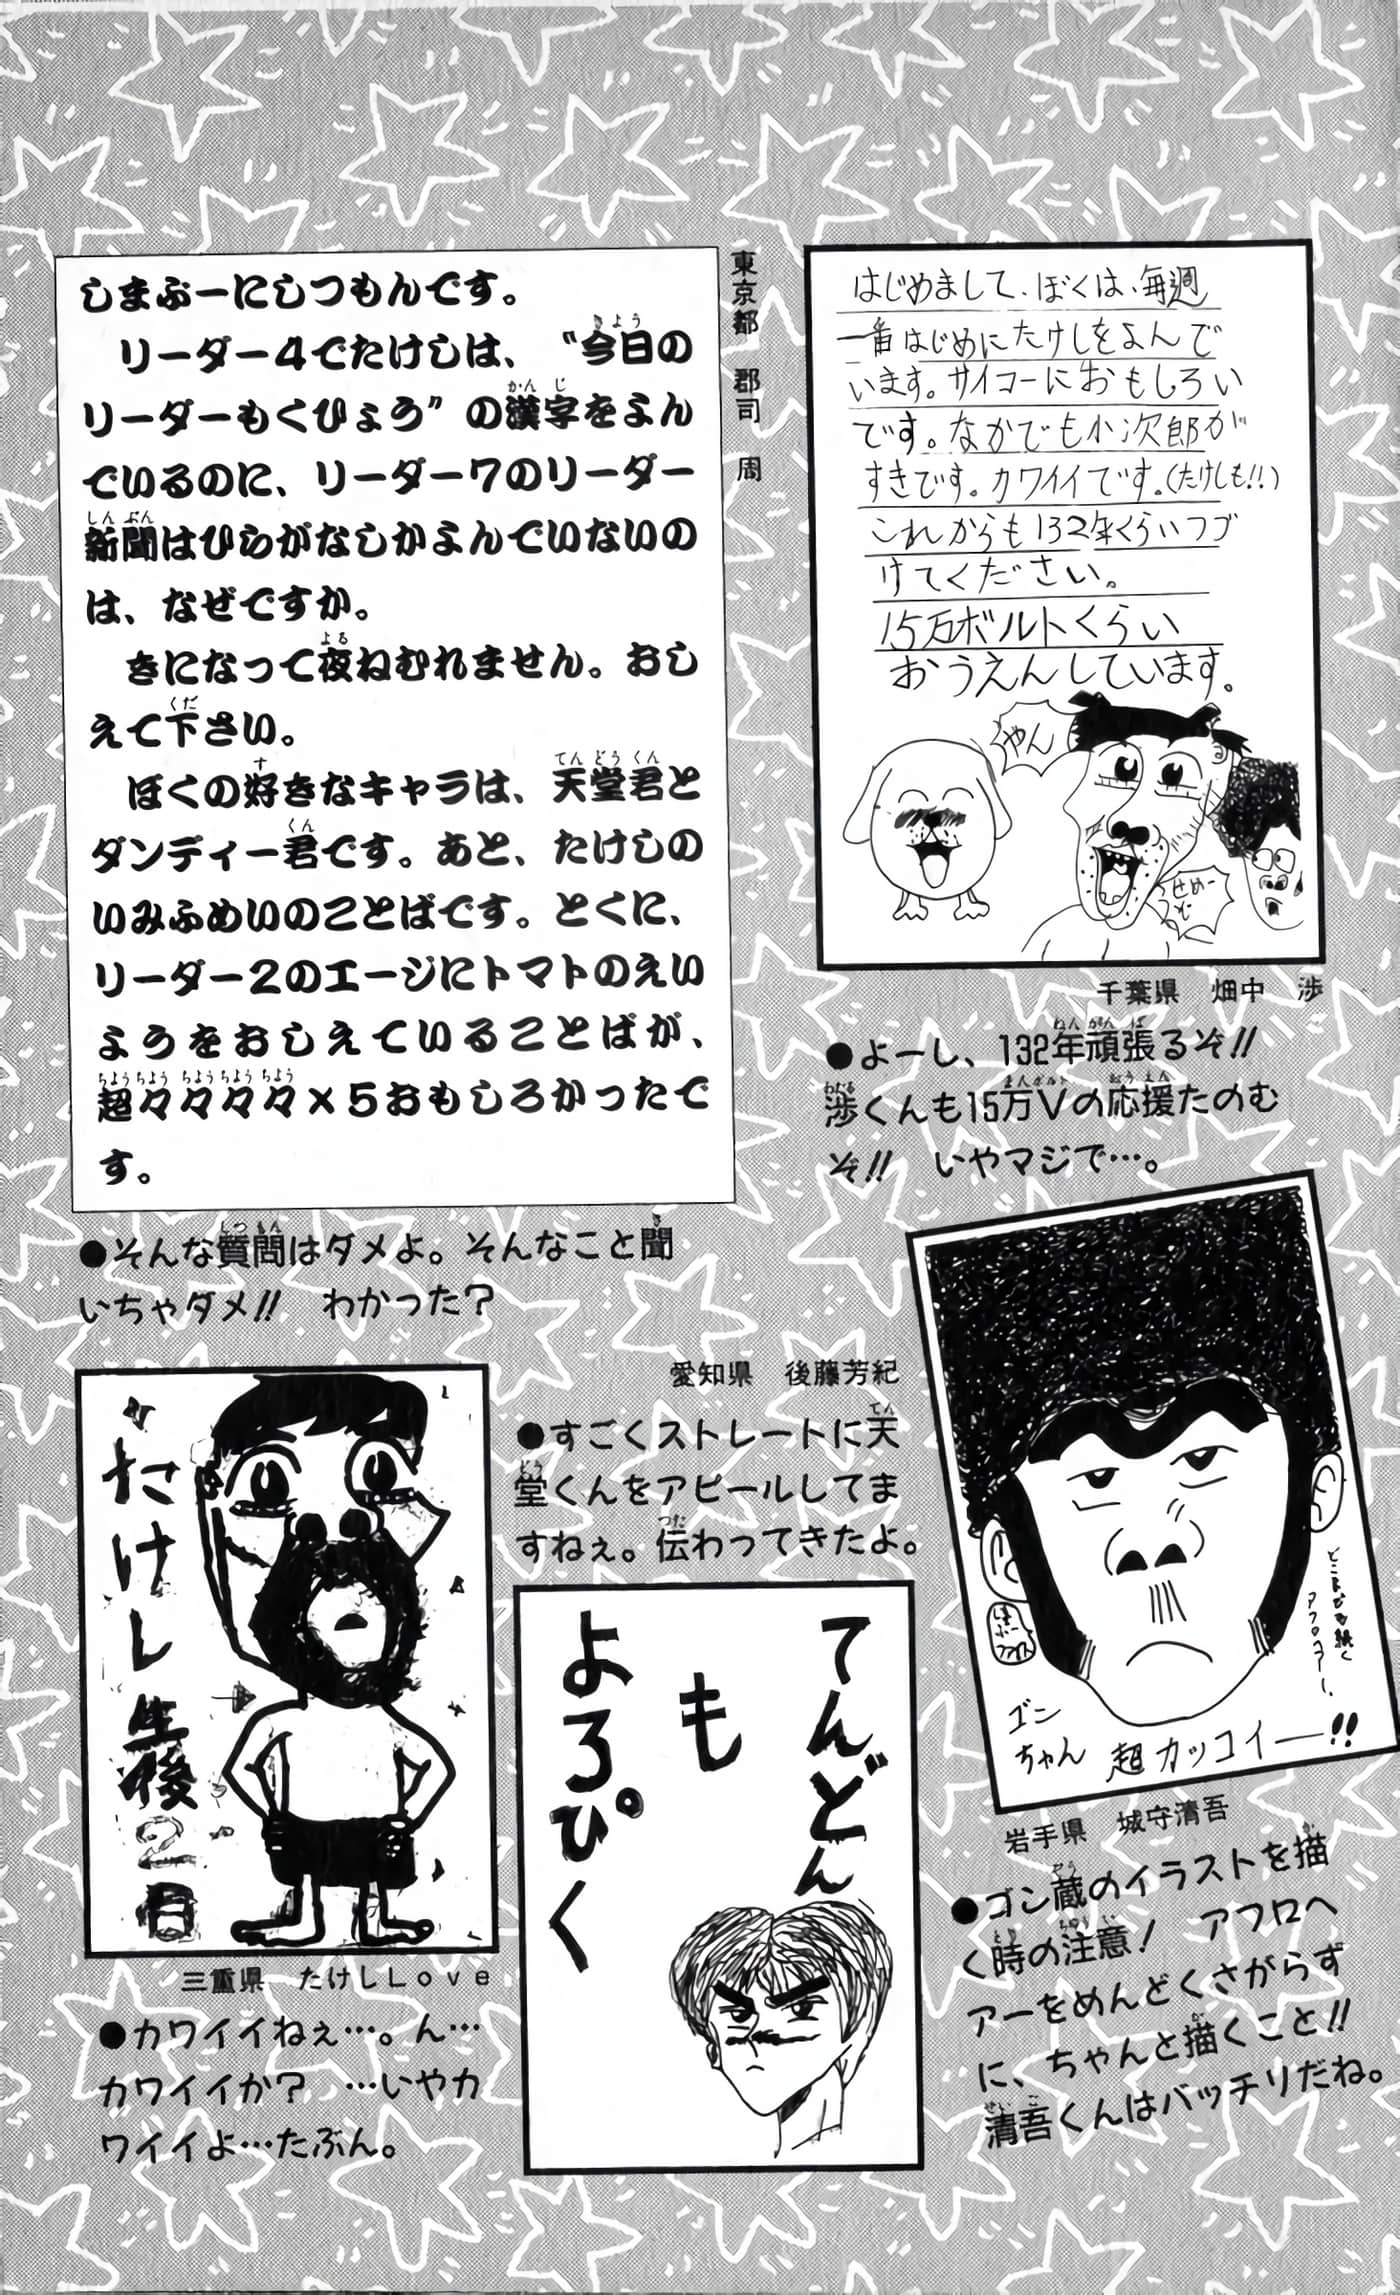 はじめまして、ぼくは、毎週
一番はじめにたけしをよんで
います。サイコーにおもしろい
です。なかでも小次郎が
すきです。カワイイです。(たけしも!!)
これからも132年くらいつづ
けてください。
15万ボルトくらい
おうえんしています。
やん
せめーぞ
千葉県 畑中 渉
●よーし、132年頑張るぞ!!
渉くんも15万Vの応援たのむ
ぞ!! いやマジで…。
東京都 郡司 周
しまぶーにしつもんです。
リーダー4でたけしは、〝今日の
リーダーもくひょう〟の漢字をよん
でいるのに、リーダー7のリーダー
新聞はひらがなしかよんでいないの
は、なぜですか。
きになって夜ねむれません。おし
えて下さい。
ぼくの好きなキャラは、天堂君と
ダンディー君です。あと、たけしの
いみふめいのことばです。とくに、
リーダー2のエージにトマトのえい
ようをおしえていることばが、
超々々々々×5おもしろかったで
す。
●そんな質問はダメよ。そんなこと聞
いちゃダメ!! わかった?
ゴン
ちゃん
超カッコイー!!
岩手県 城守清吾
●ゴン蔵のイラストを描
く時の注意! アフロヘ
アーをめんどくさがらず
に、ちゃんと描くこと!!
清吾くんはバッチリだね。
愛知県 後藤芳紀
●すごくストレートに天
堂くんをアピールしてま
すねぇ。伝わってきたよ。
てんどん
も
よろぴく
たけし生後2日
三重県 たけしLove
●カワイイねぇ…。ん…
カワイイか? …いやカ
ワイイよ…たぶん。